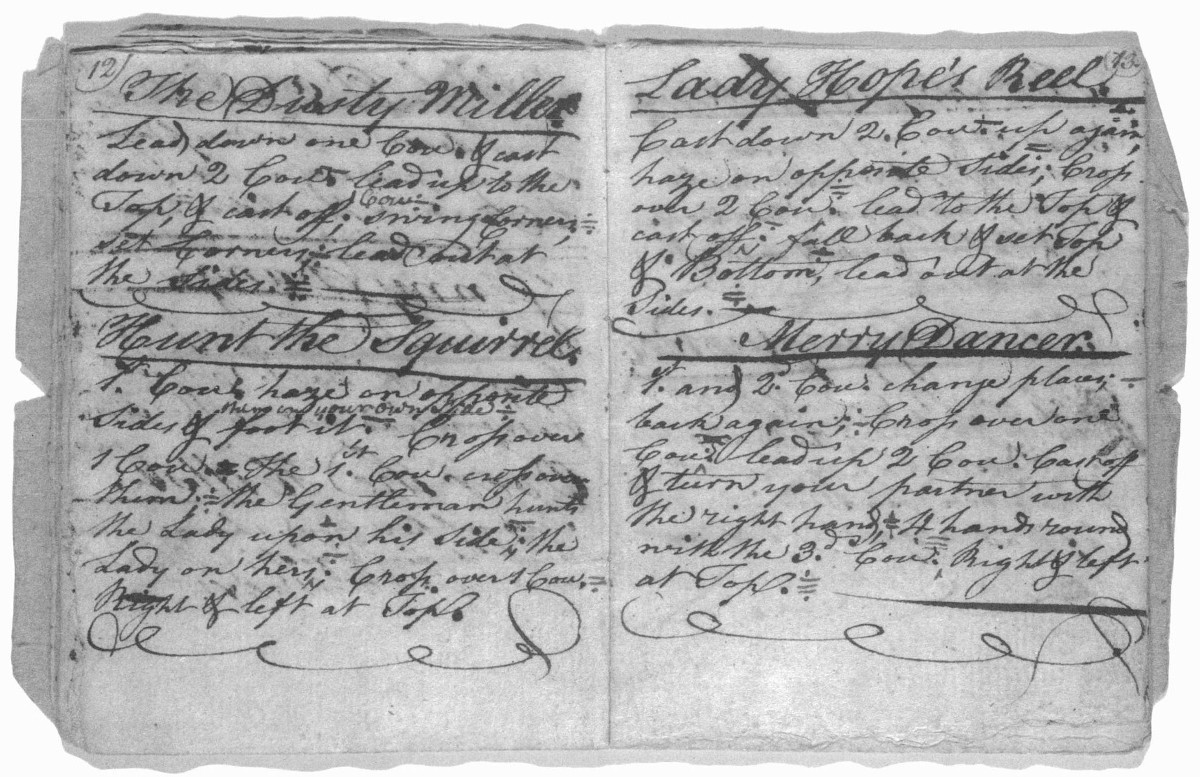 12
The Dusty Miller
Lead down one Cou. & cast
down 2 Cou. lead up to the
Top, & cast off; swing Corners,
Cou.
set Corners, lead out at
the Sides.
Hunt the Squirrel.
1st. Cou. haze on opposite
Sides & foot it. Cross over
turn on your own side
1 Cou. The 1st. Cou. cross over
them = the Gentleman hunts
the Lady upon his side; the
Lady on hers; Cross over 1 Cou.
Right & left at Top.
13
Lady Hope's Reel.
Cast down 2. Cou. up again,
haze on opposite Sides; Cross
over 2 Cou. lead to the Top &
cast off. fall back & set Top
& Bottom, lead out at the
Sides.
Merry Dancer.
1st. and 2d. Cou. change places
back again; Cross over one
Cou. lead up 2 Cou. Cast off
& turn your partner with
the right hand, 4 hands round
with the 3d. Cou. Right & left
at Top.